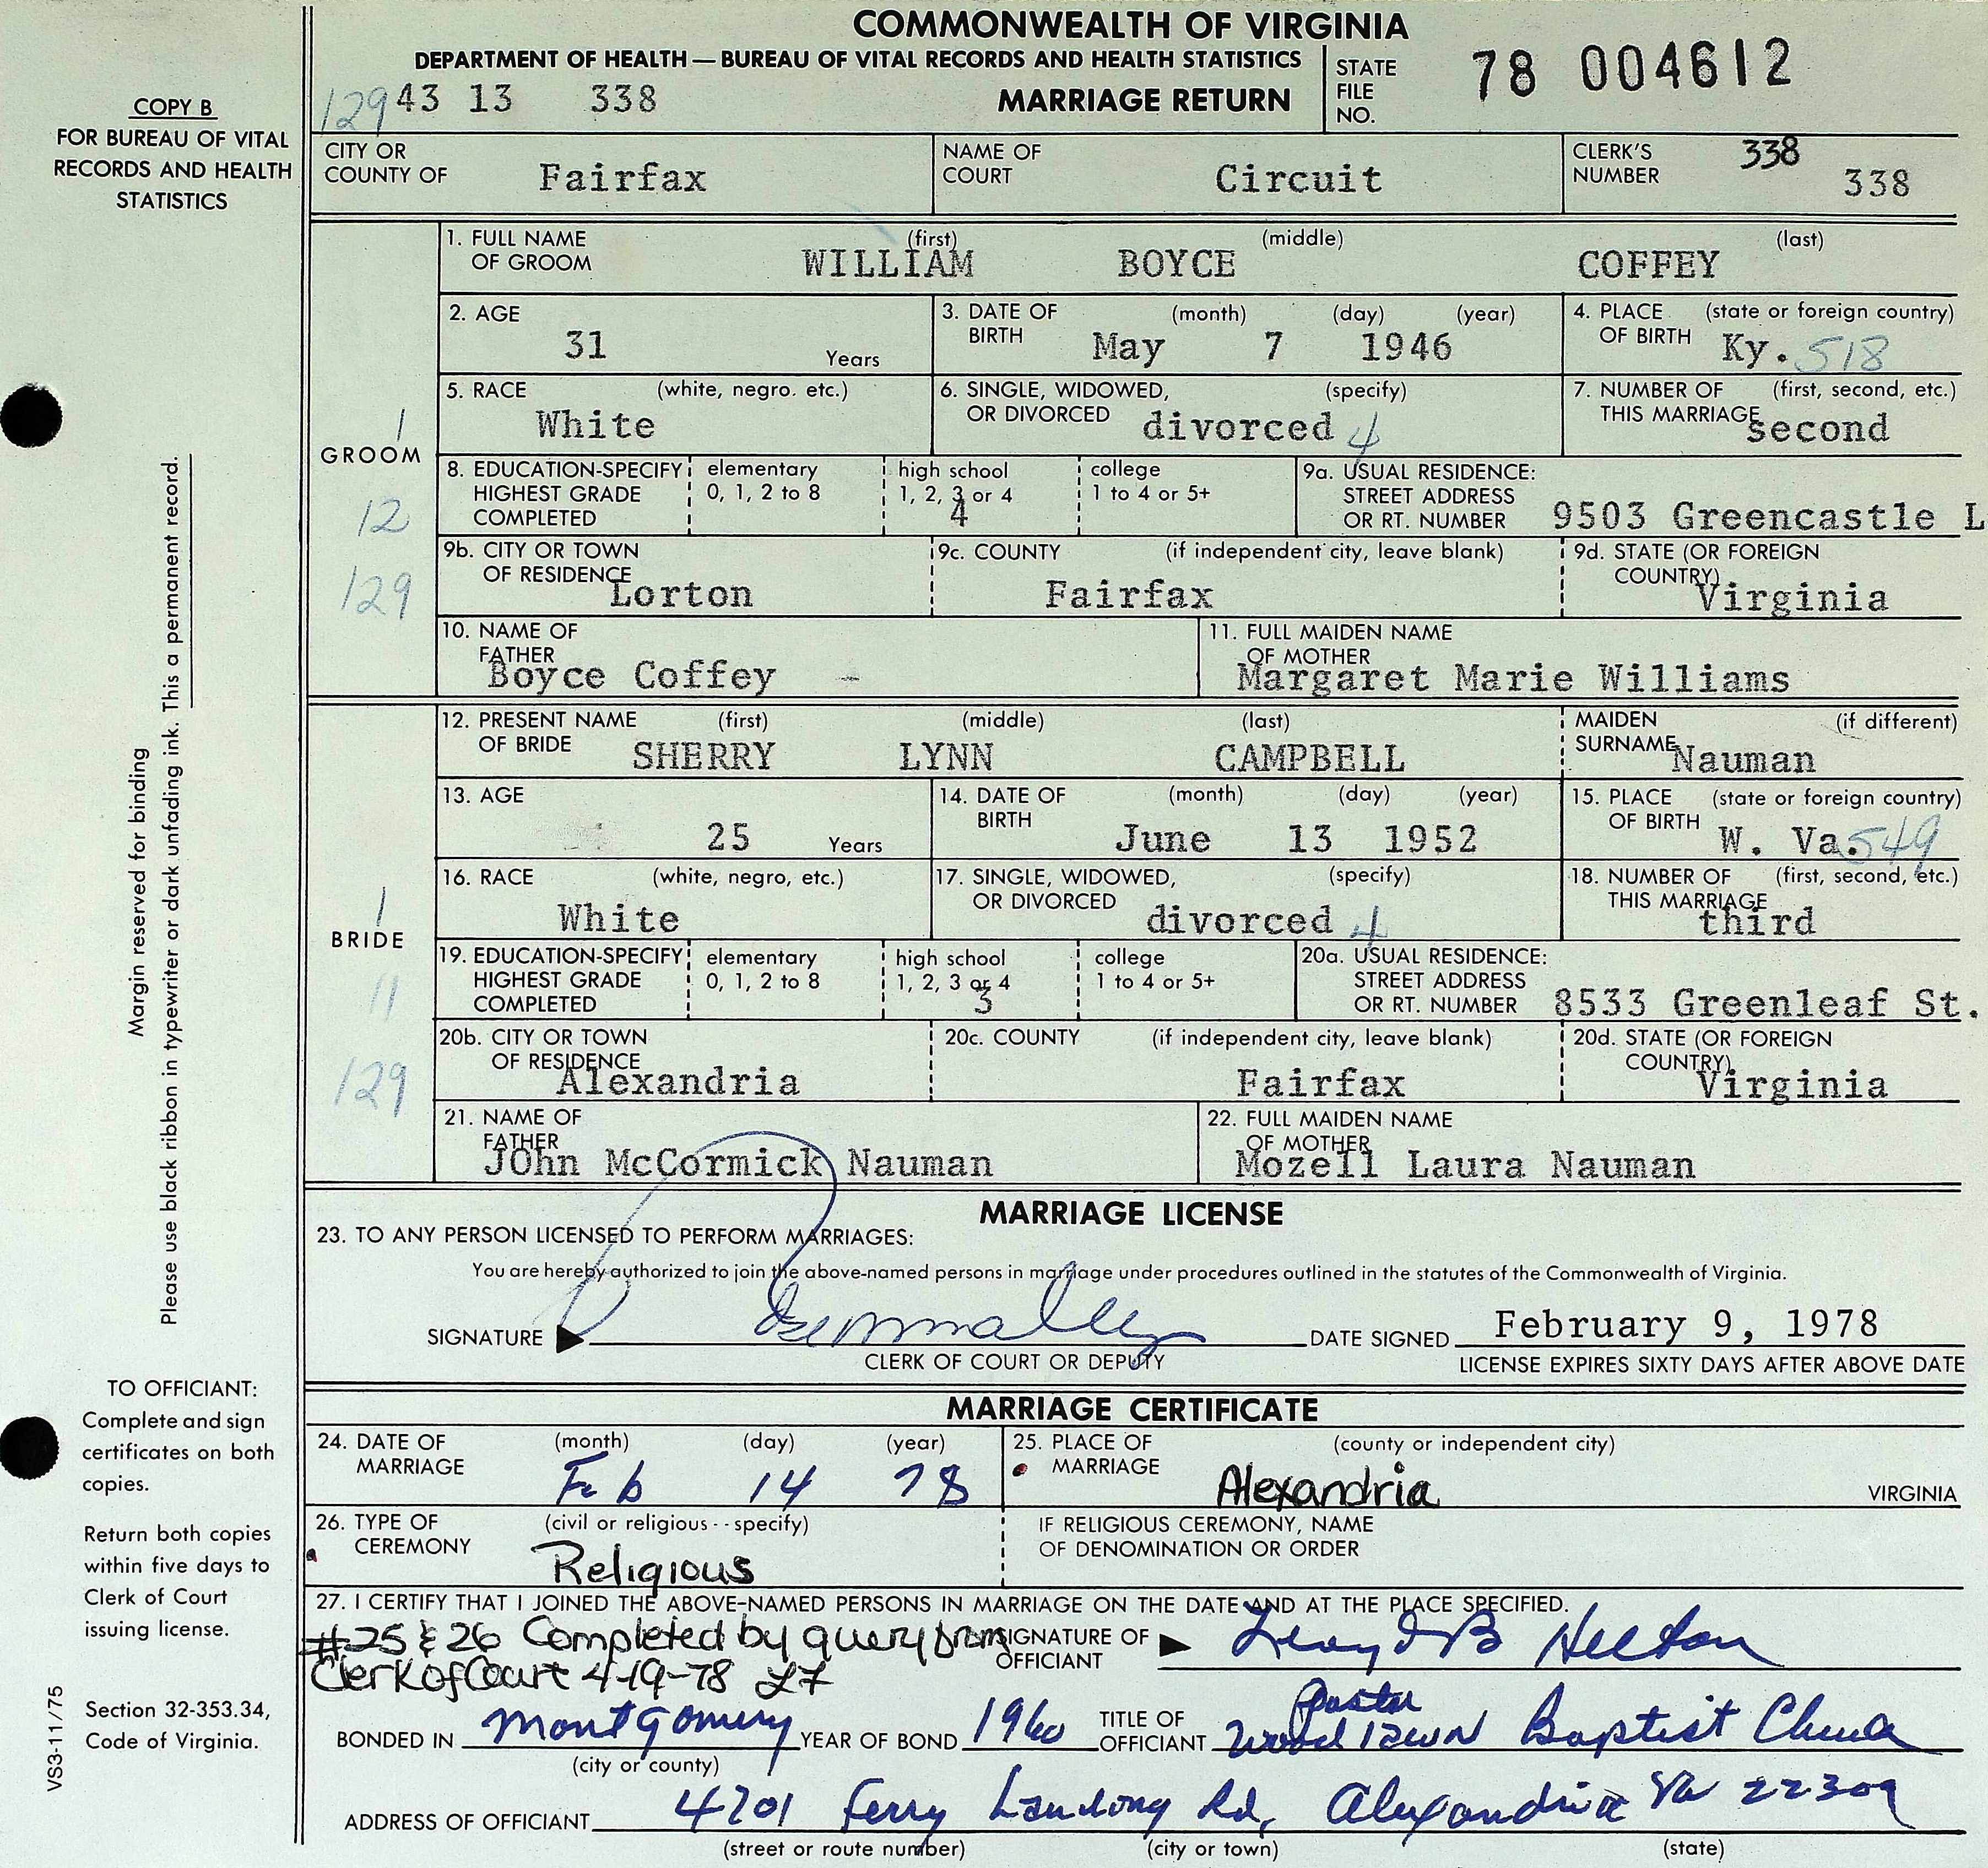 COMMONWEALTH OF VIRGINIA
DEPARTMENT OF HEALTH — BUREAU OF VITAL RECORDS AND HEALTH STATISTICS
129 43 13 338
MARRIAGE RETURN
STATE FILE NO. 78 004612
COPY B
FOR BUREAU OF VITAL
RECORDS AND HEALTH
STATISTICS
CITY OR COUNTY OF Fairfax
NAME OF COURT Circuit
CLERK'S NUMBER 338 338
GROOM
1
12
129
1. FULL NAME OF GROOM (first) WILLIAM (middle) BOYCE (last) COFFEY
2. AGE 31 Years
3. DATE OF BIRTH (month) May (day) 7 (year) 1946
4. PLACE OF BIRTH (state or foreign country) Ky. 518
5. RACE (white, negro. etc.) White
6. SINGLE, WIDOWED, OR DIVORCED (specify) divorced 4
7. NUMBER OF THIS MARRIAGE (first, second, etc.) second
8. EDUCATION-SPECIFY HIGHEST GRADE COMPLETED
elementary 0, 1, 2 to 8
high school 1, 2, 3 or 4 4
college 1 to 4 or 5+
9a. USUAL RESIDENCE: STREET ADDRESS OR RT. NUMBER 9503 Greencastle L
9b. CITY OR TOWN OF RESIDENCE Lorton
9c. COUNTY (if independent city, leave blank) Fairfax
9d. STATE (OR FOREIGN COUNTRY) Virginia
10. NAME OF FATHER Boyce Coffey -
11. FULL MAIDEN NAME OF MOTHER Margaret Marie Williams
BRIDE
1
11
129
12. PRESENT NAME OF BRIDE (first) SHERRY (middle) LYNN (last) CAMPBELL
MAIDEN SURNAME (if different) Nauman
13. AGE 25 Years
14. DATE OF BIRTH (month) June (day) 13 (year) 1952
15. PLACE OF BIRTH (state or foreign country) W. Va. 549
16. RACE (white, negro, etc.) White
17. SINGLE, WIDOWED, OR DIVORCED (specify) divorced 4
18. NUMBER OF THIS MARRIAGE (first, second, etc.) third
19. EDUCATION-SPECIFY HIGHEST GRADE COMPLETED
elementary 0, 1, 2 to 8
high school 1, 2, 3 or 4 3
college 1 to 4 or 5+
20a. USUAL RESIDENCE: STREET ADDRESS OR RT. NUMBER 8533 Greenleaf St.
20b. CITY OR TOWN OF RESIDENCE Alexandria
20c. COUNTY (if independent city, leave blank) Fairfax
20d. STATE (OR FOREIGN COUNTRY) Virginia
21. NAME OF FATHER JOhn McCormick Nauman
22. FULL MAIDEN NAME OF MOTHER Mozell Laura Nauman
Margin reserved for binding
Please use black ribbon in typewriter or dark unfading ink. This a permanent record.
MARRIAGE LICENSE
23. TO ANY PERSON LICENSED TO PERFORM MARRIAGES:
You are hereby authorized to join the above-named persons in marriage under procedures outlined in the statutes of the Commonwealth of Virginia.
SIGNATURE
CLERK OF COURT OR DEPUTY
DATE SIGNED February 9, 1978
LICENSE EXPIRES SIXTY DAYS AFTER ABOVE DATE
MARRIAGE CERTIFICATE
24. DATE OF MARRIAGE (month) Feb (day) 14 (year) 78
25. PLACE OF MARRIAGE (county or independent city) Alexandria VIRGINIA
26. TYPE OF CEREMONY (civil or religious - - specify) Religious
IF RELIGIOUS CEREMONY, NAME OF DENOMINATION OR ORDER
27. I CERTIFY THAT I JOINED THE ABOVE-NAMED PERSONS IN MARRIAGE ON THE DATE AND AT THE PLACE SPECIFIED.
#25 & 26 Completed by query from
Clerk of Court 4-19-78 LF
SIGNATURE OF OFFICIANT Lloyd B Helton
BONDED IN Montgomery (city or county)
YEAR OF BOND 1960
TITLE OF OFFICIANT Pastor Woodlawn Baptist Church
ADDRESS OF OFFICIANT 4701 Ferry Landing Rd, Alexandria Va 22309
(street or route number) (city or town) (state)
TO OFFICIANT:
Complete and sign
certificates on both
copies.
Return both copies
within five days to
Clerk of Court
issuing license.
Section 32-353.34,
Code of Virginia.
VS3-11/75